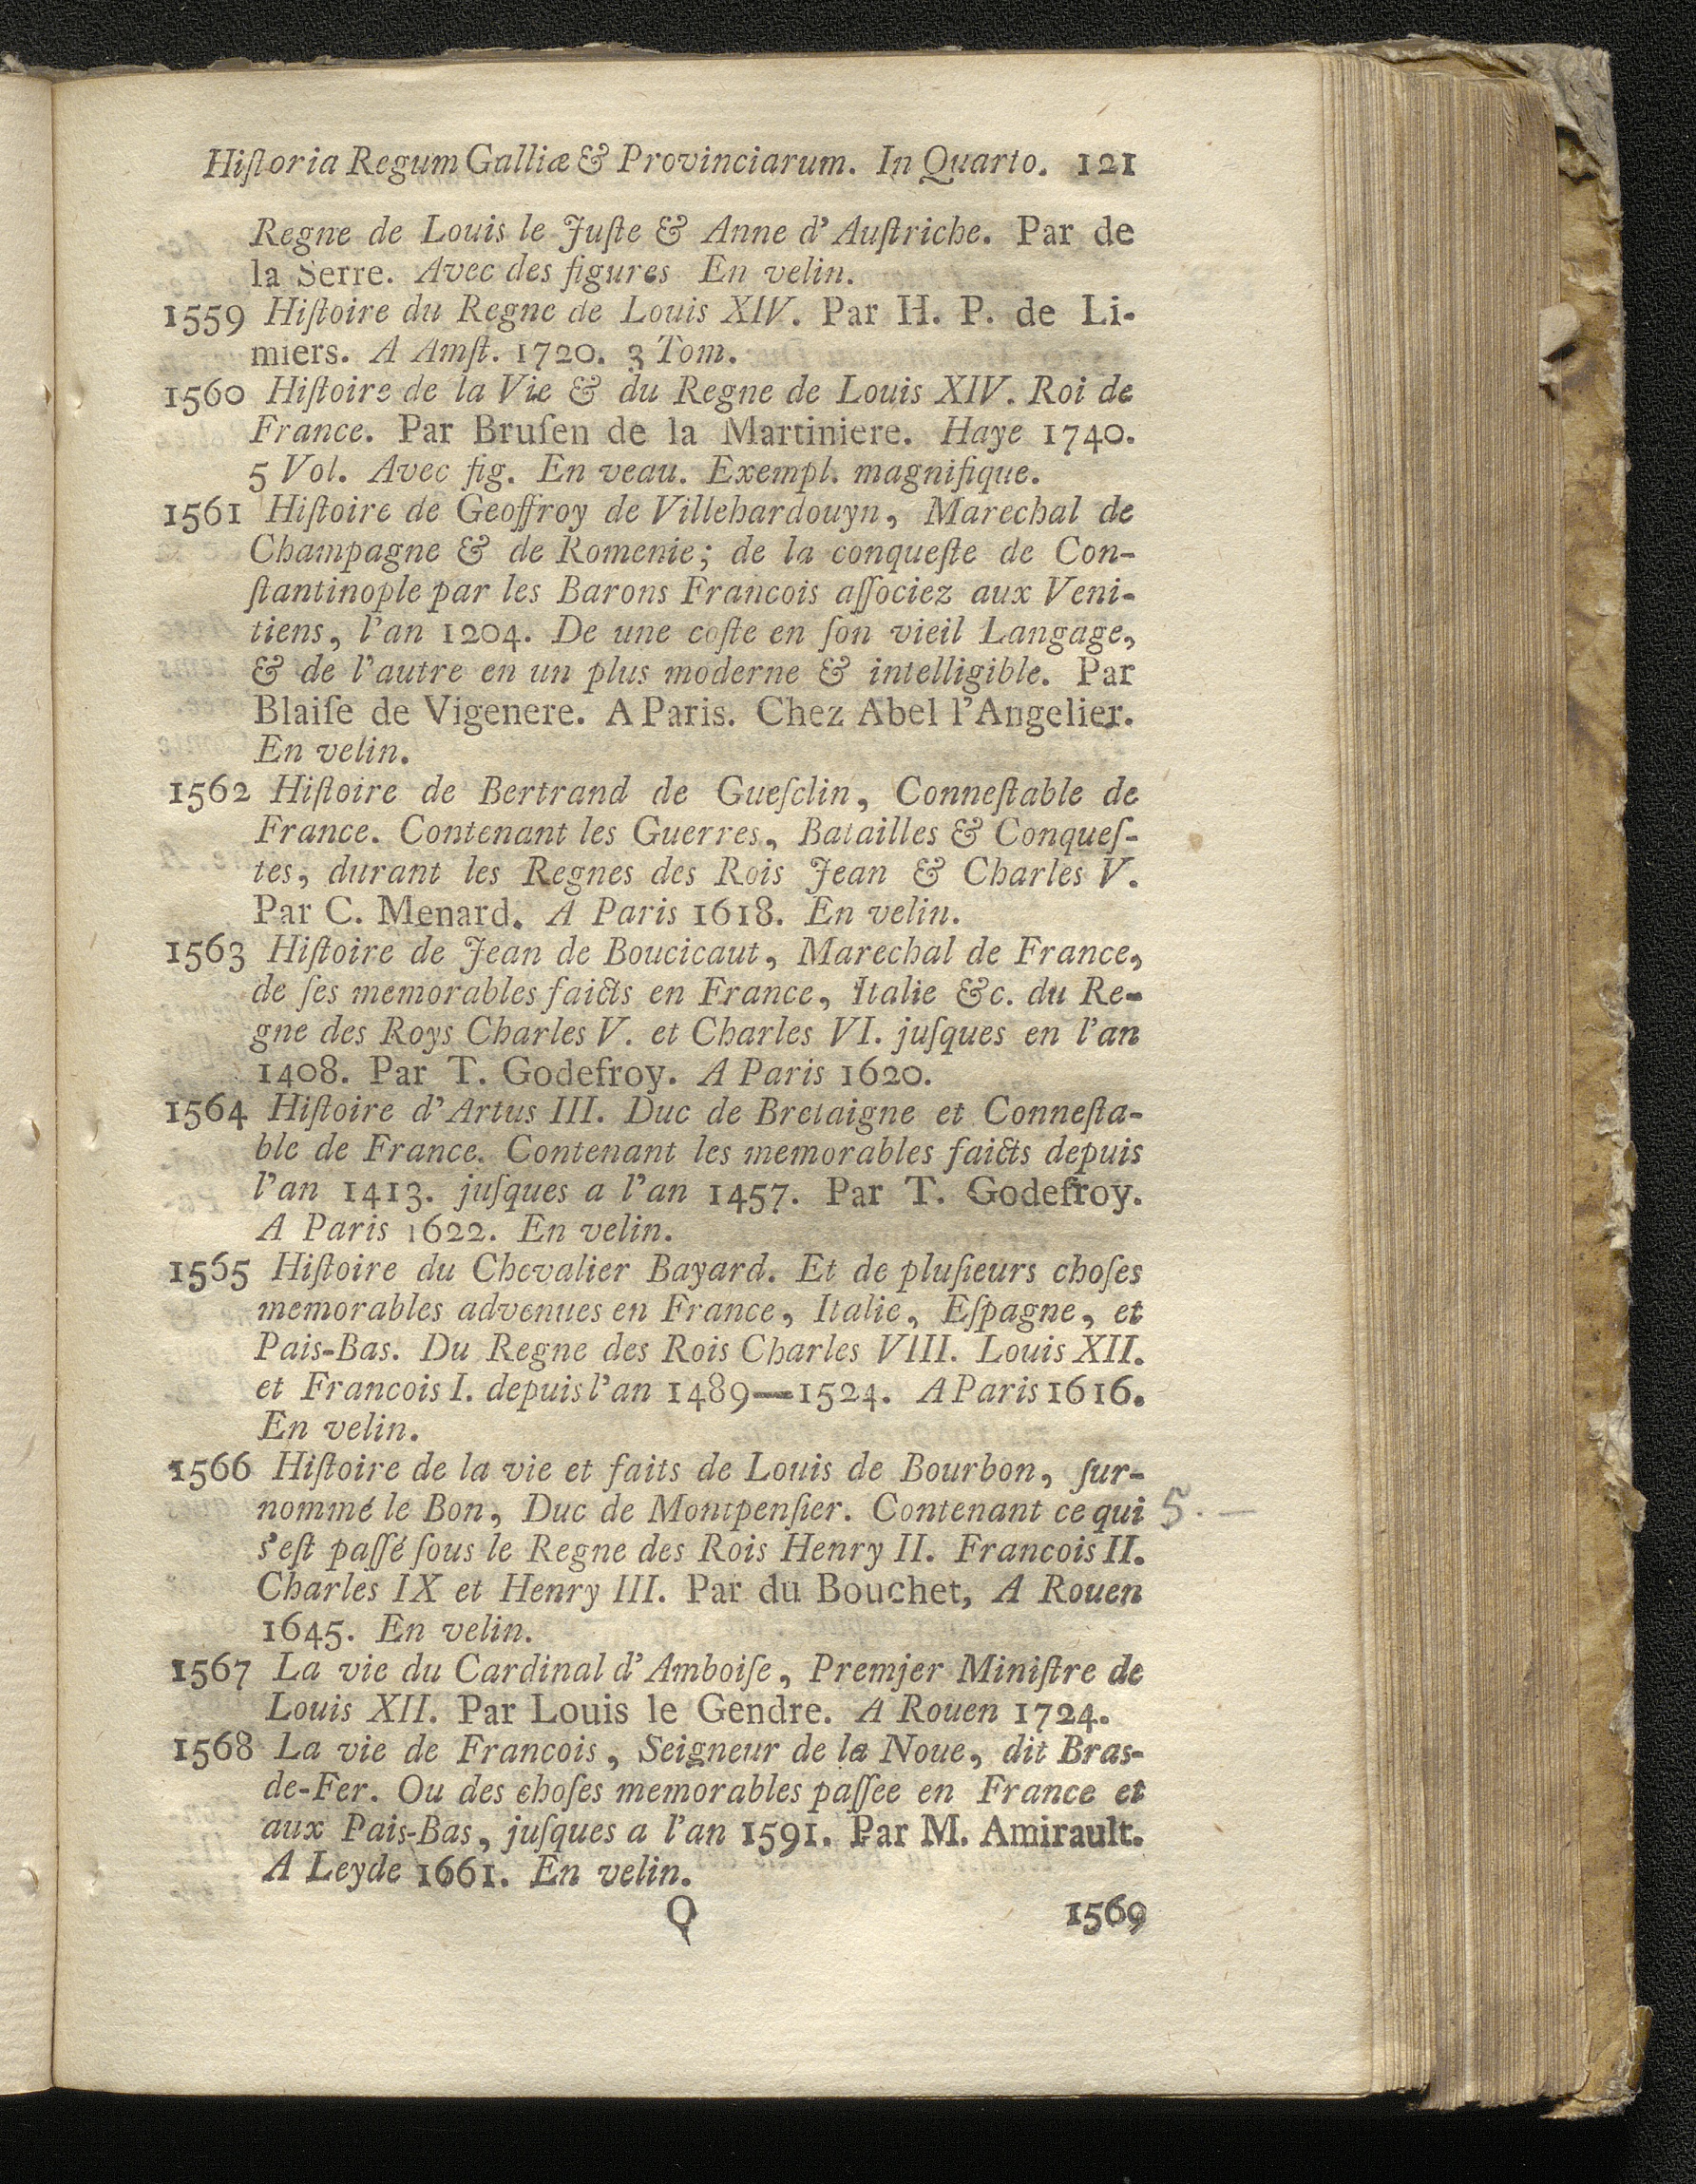 Hiſtoria Regum Galliæ & Provinciarum. In Quarto. 121
Regne de Louis le Juſte & Anne d'Auſtriche. Par de
la Serre. Avec des figures En velin.
1559 Hiſtoire du Regne de Louis XIV. Par H. P. de Li-
miers. A Amſt. 1720. 3 Tom.
1560 Hiſtoire de la Vie & du Regne de Louis XIV. Roi de
France. Par Bruſen de la Martiniere. Haye 1740.
5 Vol. Avec fig. En veau. Exempl. magnifique.
1561 Hiſtoire de Geoffroy de Villehardouyn, Marechal de
Champagne & de Romenie; de la conqueſte de Con-
ſtantinople par les Barons Francois aſſociez aux Veni-
tiens, l'an 1204. De une coſte en ſon vieil Langage,
& de l'autre en un plus moderne & intelligible. Par
Blaiſe de Vigenere. A Paris. Chez Abel l'Angelier.
En velin.
1562 Hiſtoire de Bertrand de Gueſclin, Conneſtable de
France. Contenant les Guerres, Batailles & Conqueſ-
tes, durant les Regnes des Rois Jean & Charles V.
Par C. Menard. A Paris 1618. En velin.
1563 Hiſtoire de Jean de Boucicaut, Marechal de France,
de ſes memorables faicts en France, Italie &c. du Re-
gne des Roys Charles V. et Charles VI. juſques en l'an
1408. Par T. Godefroy. A Paris 1620.
1564 Hiſtoire d'Artus III. Duc de Bretaigne et Conneſta-
ble de France. Contenant les memorables faicts depuis
l'an 1413. juſques a l'an 1457. Par T. Godefroy.
A Paris 1622. En velin.
1565 Hiſtoire du Chevalier Bayard. Et de pluſieurs choſes
memorables advenues en France, Italie, Eſpagne, et
Pais-Bas. Du Regne des Rois Charles VIII. Louis XII.
et Francois I. depuis l'an 1489—1524. A Paris 1616.
En velin.
1566 Hiſtoire de la vie et faits de Louis de Bourbon, ſur-
nommé le Bon, Duc de Montpenſier. Contenant ce qui 5. —
s'eſt paſſé ſous le Regne des Rois Henry II. Francois II.
Charles IX et Henry III. Par du Bouchet, A Rouen
1645. En velin.
1567 La vie du Cardinal d'Amboiſe, Premjer Miniſtre de
Louis XII. Par Louis le Gendre. A Rouen 1724.
1568 La vie de Francois, Seigneur de la Noue, dit Bras-
de-Fer. Ou des choſes memorables paſſee en France et
aux Pais-Bas, juſques a l'an 1591. Par M. Amirault.
A Leyde 1661. En velin.
Q 1569